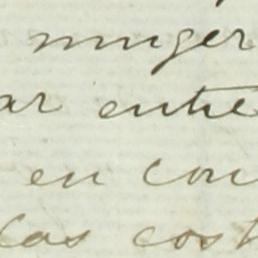 muger
ar entre
en con
las cost